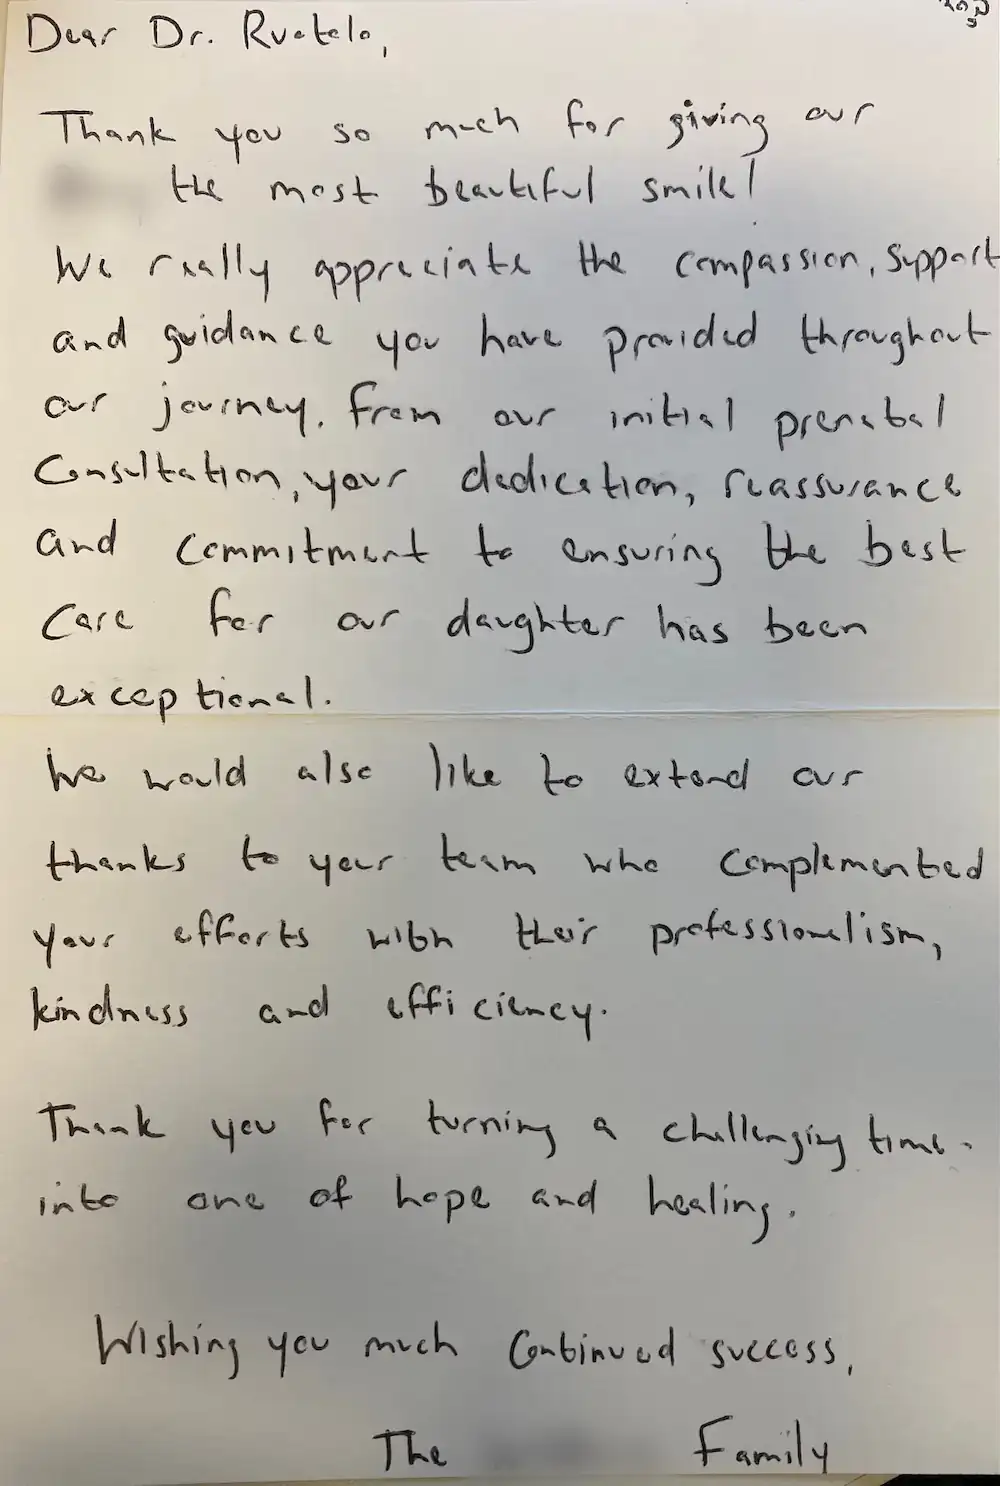 Dear Dr. Ruotolo,
Thank you so much for giving our
the most beautiful smile!
We really appreciate the compassion, support
and guidance you have provided throughout
our journey. From our initial prenatal
Consultation, your dedication, reassurance
and commitment to ensuring the best
Care for our daughter has been
exceptional.
We would also like to extend our
thanks to your team who complemented
your efforts with their professionalism,
kindness and efficiency.
Thank you for turning a challenging time
into one of hope and healing.
Wishing you much Continued success,
The Family